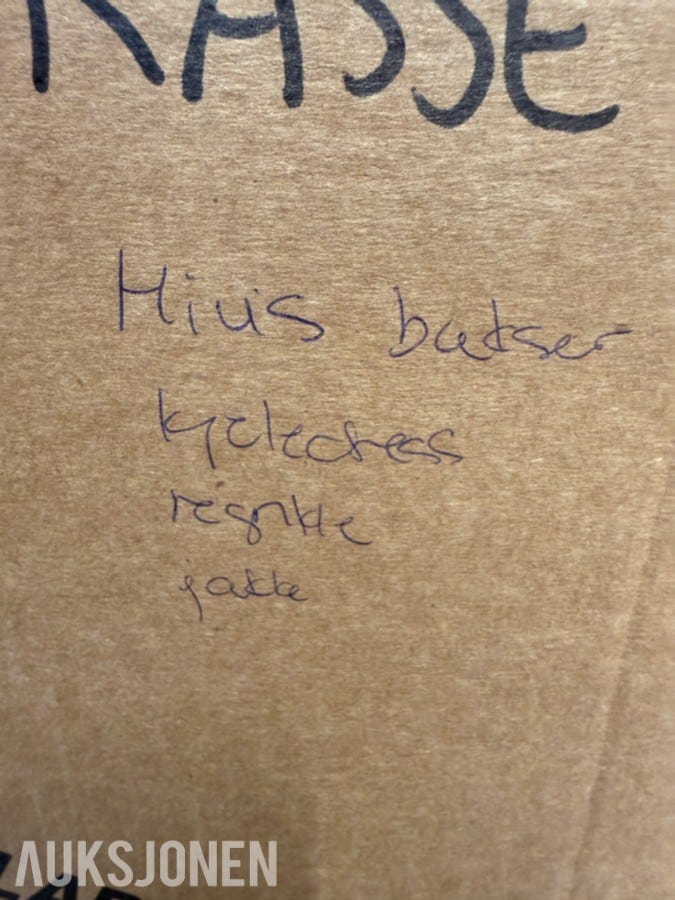 KASSE
Hius bukser
kjeledress
regnkle
jakke
AUKSJONEN